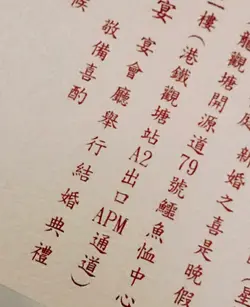 (星
婚之喜是晚假
觀塘開源道79號鱷魚恤中心
樓(港鐵觀塘站A2出口APM通道)
宴 宴會廳舉行結婚典禮
敬備喜酌
候